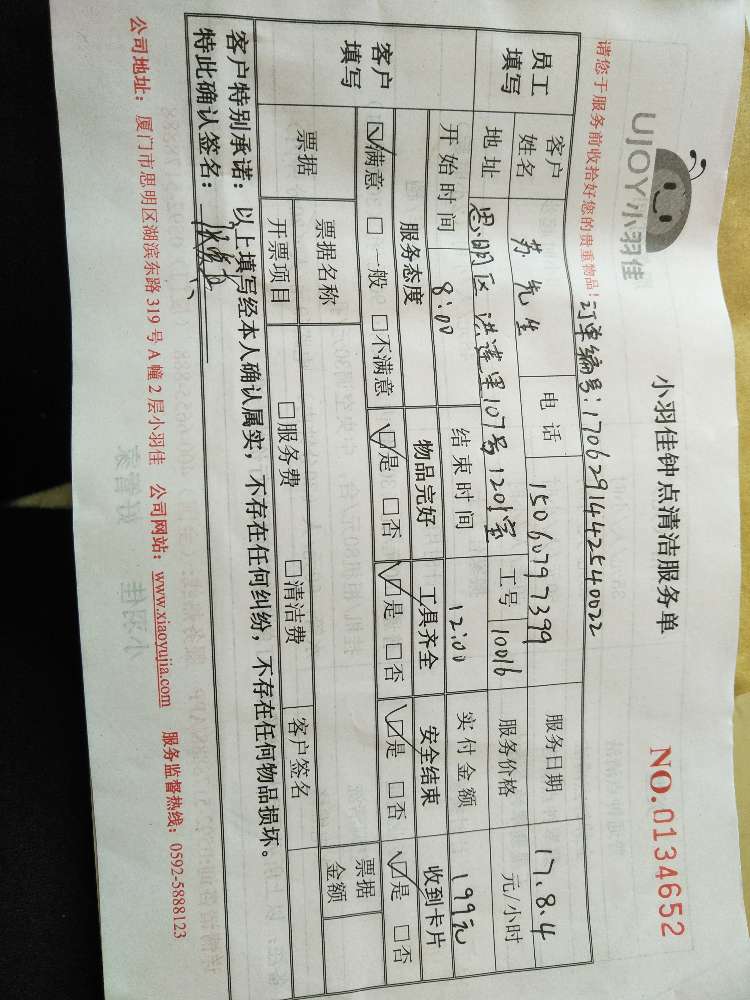 UJOY小羽佳
小羽佳钟点清洁服务单
NO.0134652
请您于服务前收拾好您的贵重物品!
订单编号:1706291442540022
员工填写
客户姓名 苏先生 电话 15060797399 服务日期 17.8.4
地址 思明区洪莲里107号1201室 工号 10016 服务价格 元/小时
开始时间 8:00 结束时间 12:00 实付金额 199元
客户填写
服务态度 物品完好 工具齐全 安全结束 收到卡片
☑满意 □一般 □不满意 ☑是 □否 ☑是 □否 ☑是 □否 ☑是 □否
票据 票据名称 票据金额
开票项目 □服务费 □清洁费 客户签名
客户特别承诺:以上填写经本人确认属实,不存在任何纠纷,不存在任何物品损坏。
特此确认签名:
公司地址:厦门市思明区湖滨东路319号A幢2层小羽佳 公司网站:www.xiaoyujia.com 服务监督热线:0592-5888123